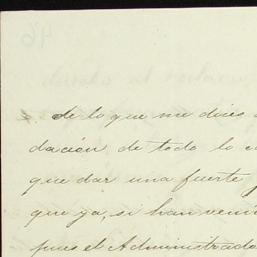 de lo que me dices
dación de todo lo
que dar una fuerte
que ya, si han veni
pues el Administrado